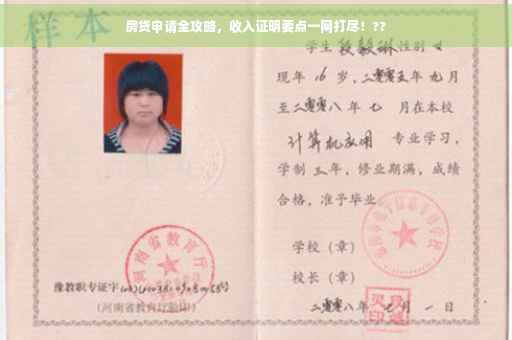 房贷申请全攻略，收入证明要点一网打尽！??
样本
学生 段毅琳 性别 女
现年 16 岁，二零零五年 九月
至二零零八年 七 月在本校
计算机应用 专业学习，
学制 三年，修业期满，成绩
合格，准予毕业
学校（章）
校长（章）
二零零八年 七月 一 日
河南省教育厅
豫教职专证字
（河南省教育厅验印）